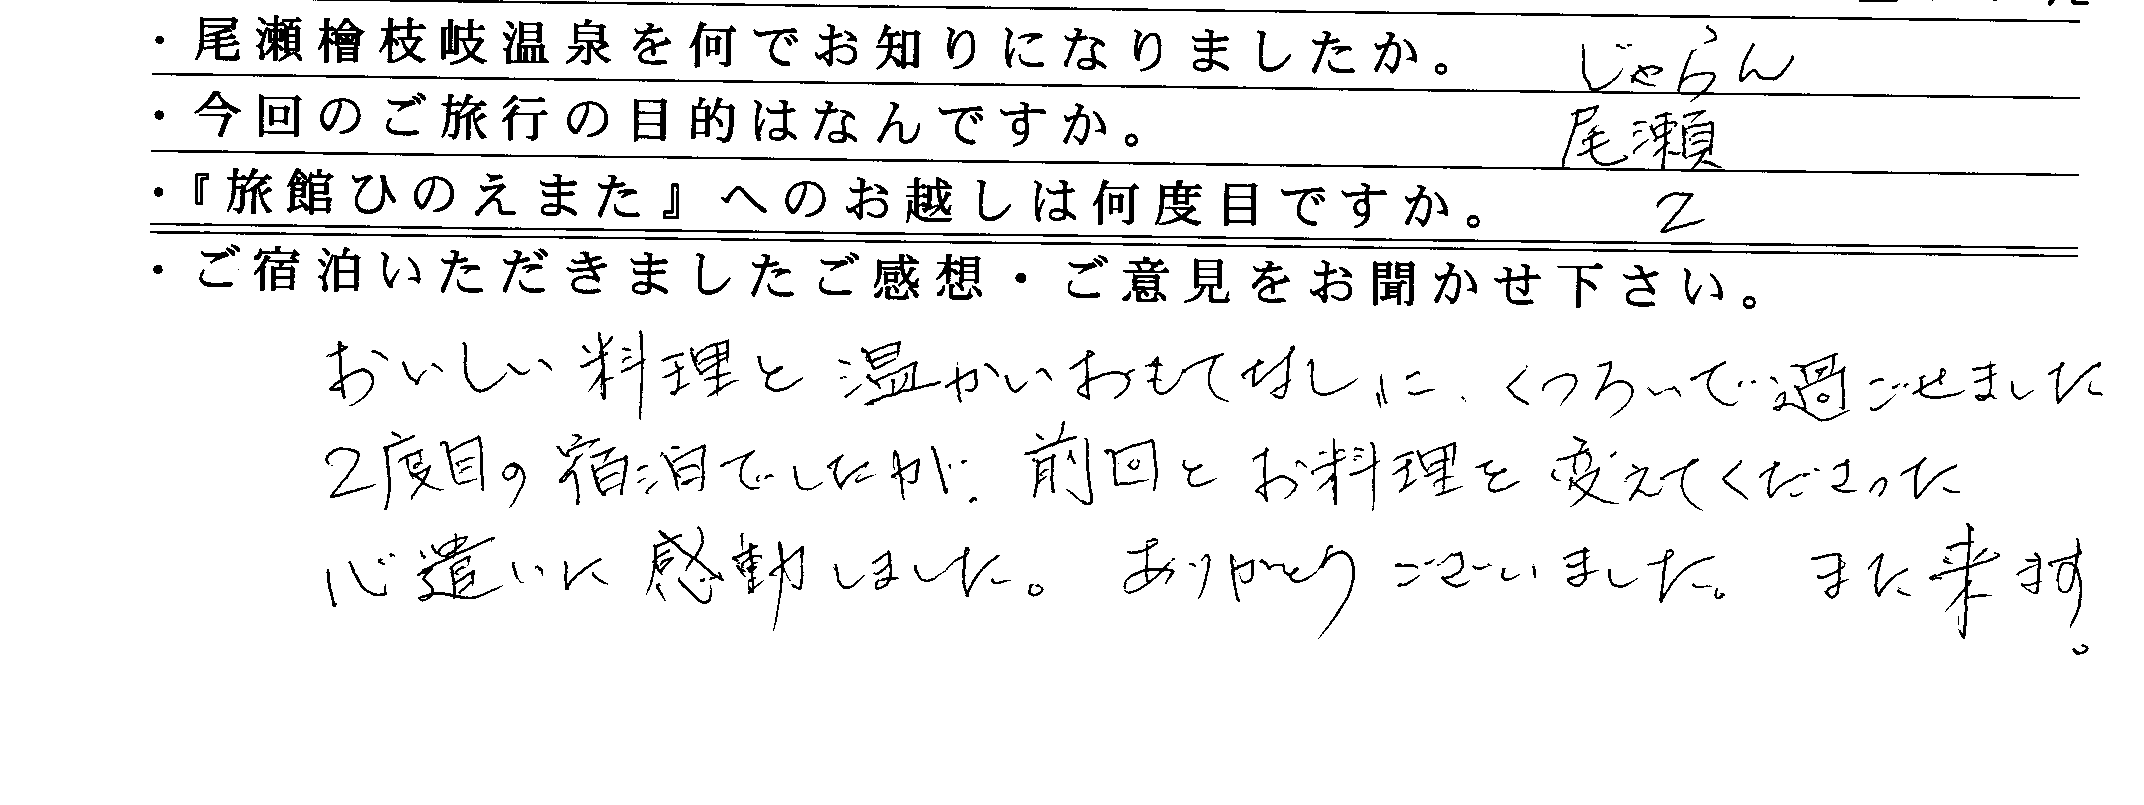 ・尾瀬檜枝岐温泉を何でお知りになりましたか。 じゃらん
・今回のご旅行の目的はなんですか。 尾瀬
・『旅館ひのえまた』へのお越しは何度目ですか。 2
・ご宿泊いただきましたご感想・ご意見をお聞かせ下さい。
おいしい料理と温かいおもてなしに、くつろいで過ごせました
2度目の宿泊でしたが、前回とお料理を変えてくださった
心遣いに感動しました。ありがとうございました。また来ます。